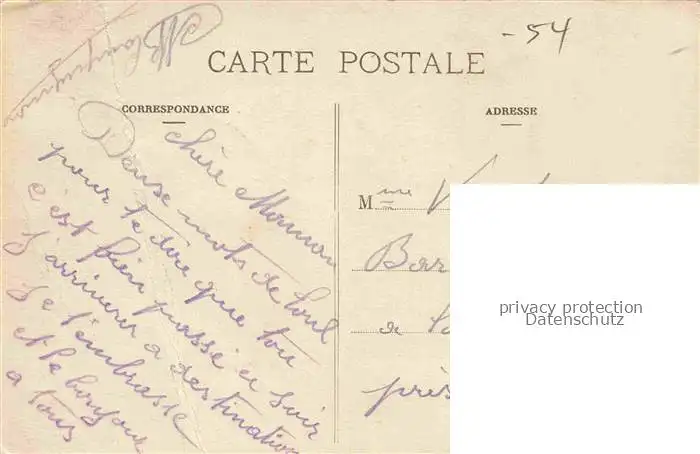 -54
CARTE POSTALE
CORRESPONDANCE
ADRESSE
chère Maman
Deuse mots de Toul
pour te dire que tou
c'est bien passé ce suir
j'arriveur a destination
Je t'embrasse
et le bonjour
a tous
Mme V
Bar
de
près
privacy protection
Datenschutz